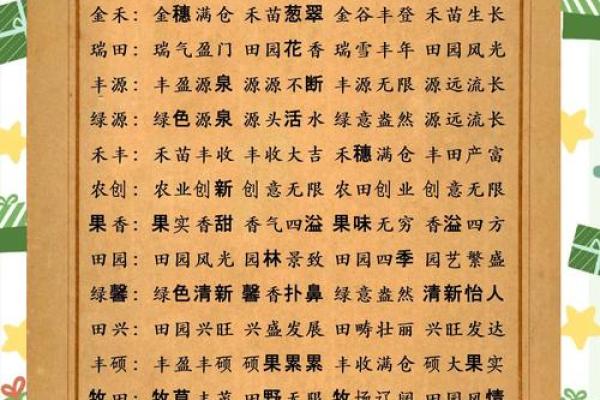 金禾：金穗满仓 禾苗葱翠 金谷丰登 禾苗生长
瑞田：瑞气盈门 田园花香 瑞雪丰年 田园风光
丰源：丰盈源泉 源源不断 丰源无限 源远流长
绿源：绿色源泉 源头活水 绿意盎然 源远流长
禾丰：禾苗丰收 丰收大吉 禾穗满仓 丰田产富
农创：农业创新 创意无限 农田创意 创意无限
果香：果实香甜 香气四溢 果味无穷 香溢四方
田园：田园风光 园林景致 田园四季 园艺繁盛
绿馨：绿色清新 馨香扑鼻 绿意盎然 清新怡人
田兴：田园兴旺 兴盛发展 田畴壮丽 兴旺发达
丰硕：丰盈丰硕 硕果累累 丰收满仓 硕大果实
牧田：牧草丰茂 田野无限 牧场辽阔 田园风情